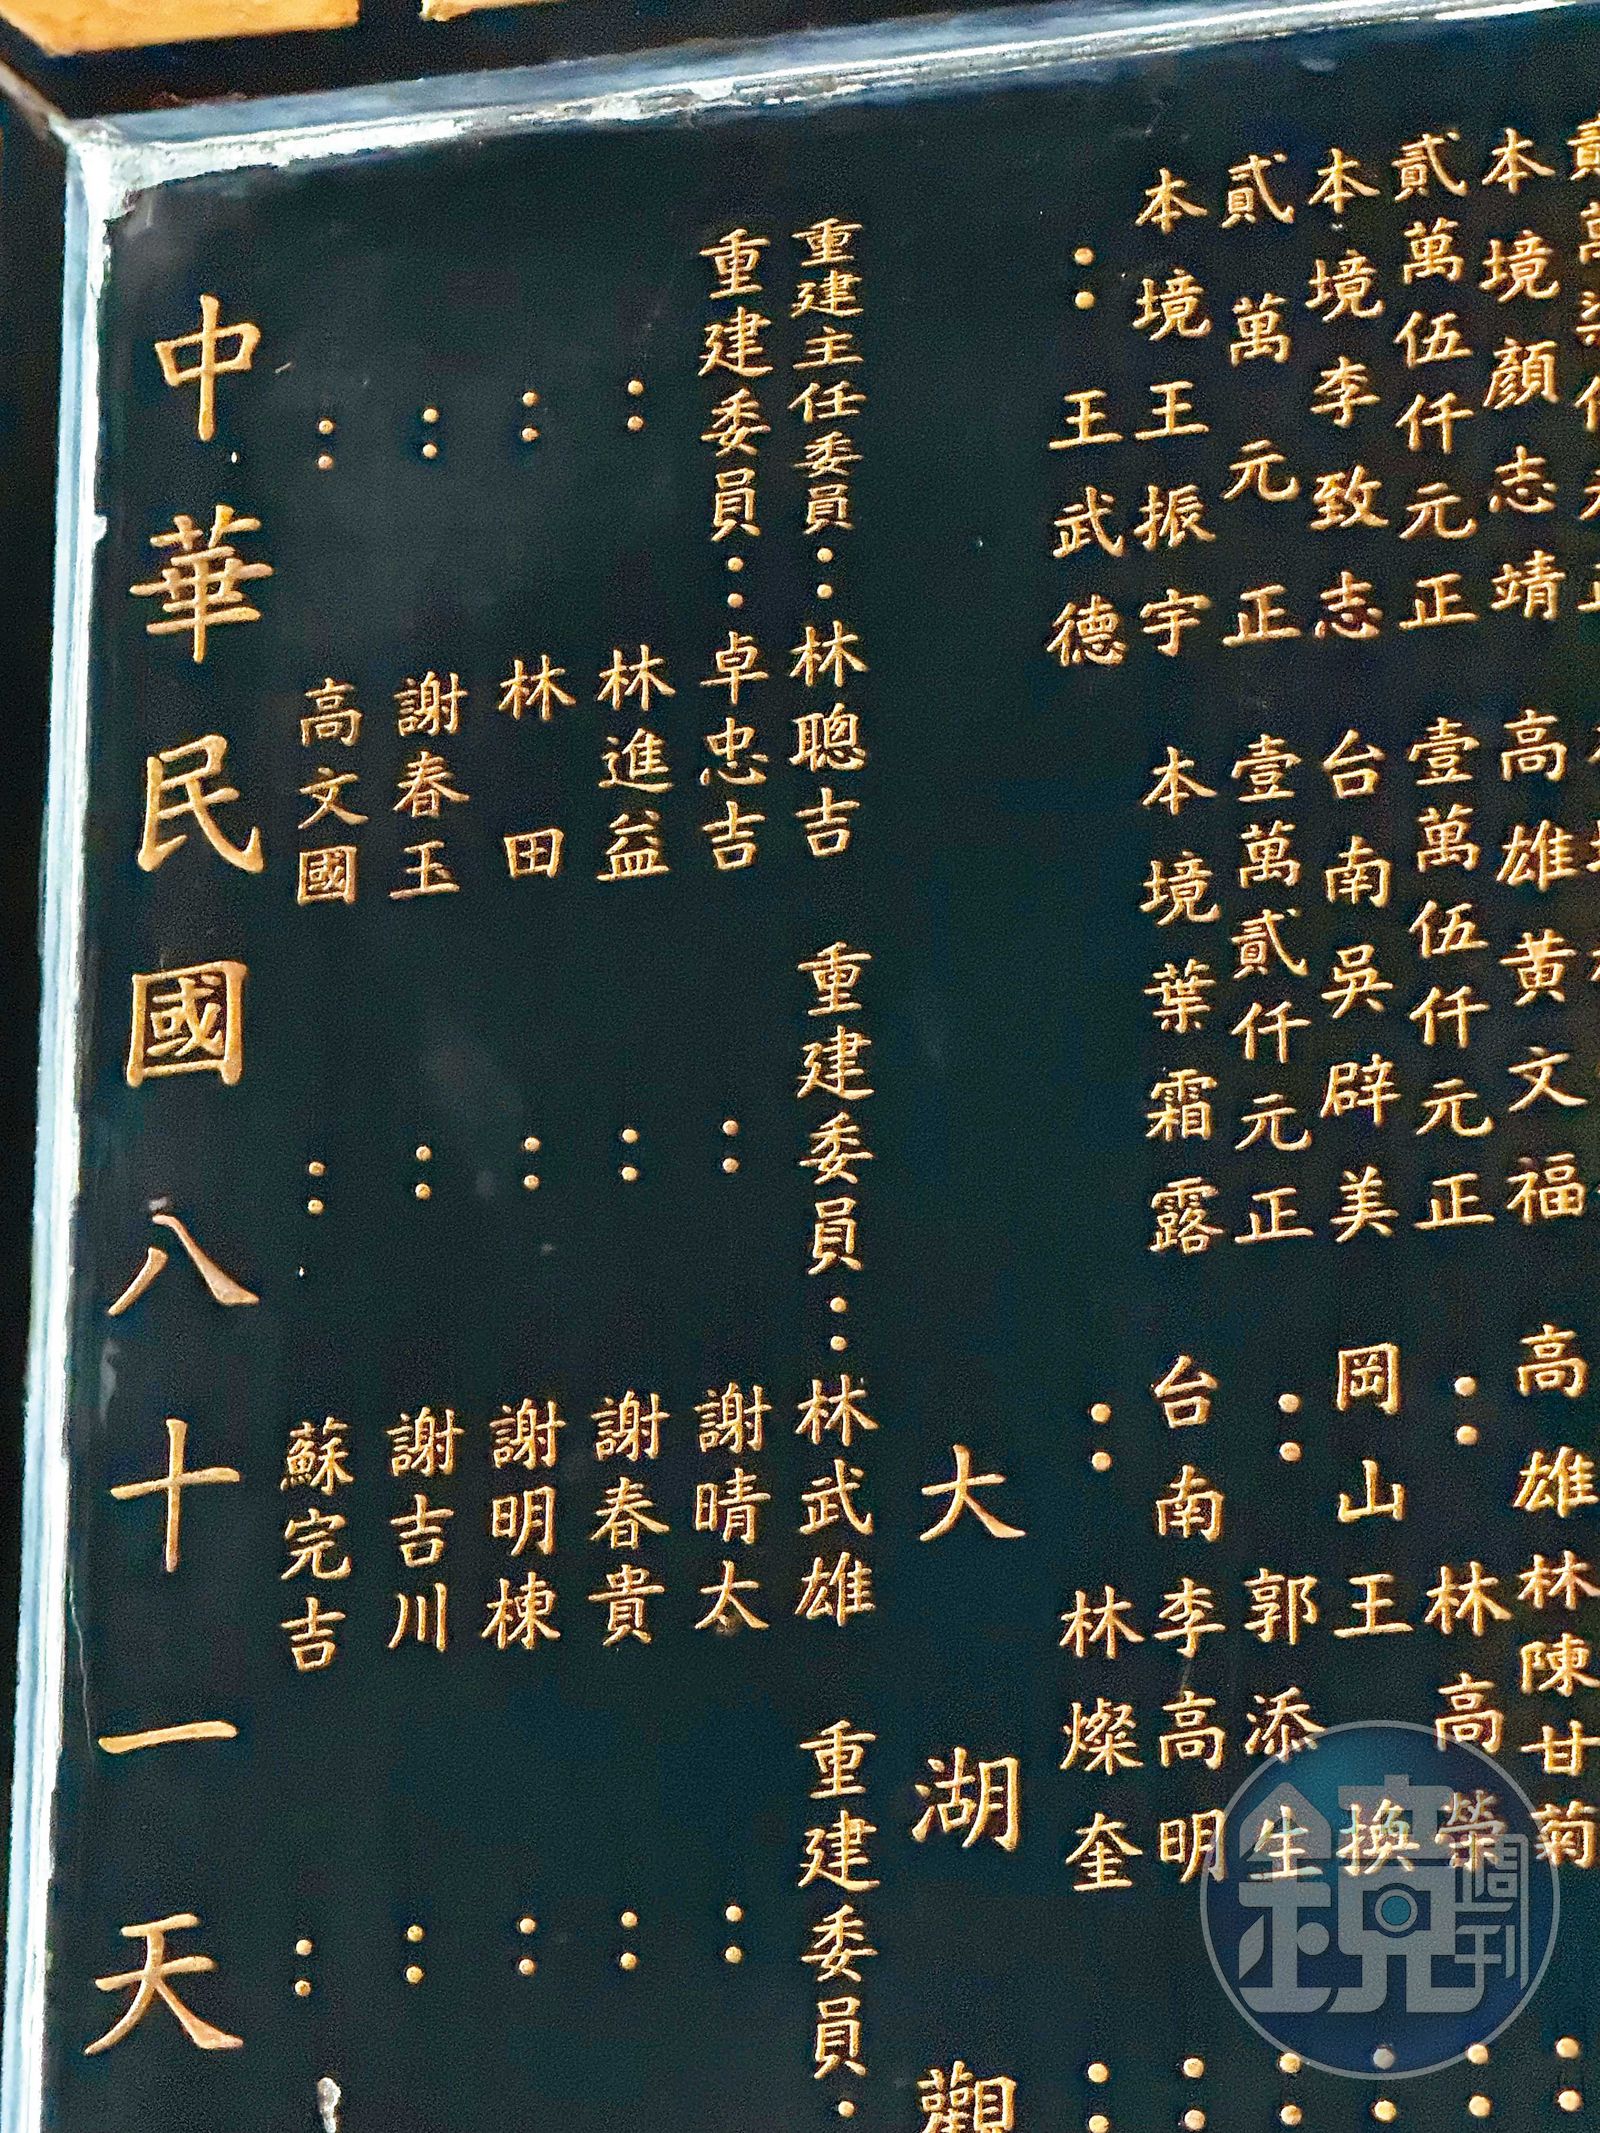 本境顏志靖 高雄黃文福 高雄林陳甘菊 ：
貳萬伍仟元正 壹萬伍仟元正 ：林高榮 ：
本境李致志 台南吳辟美 岡山王換 ：
貳萬元正 壹萬貳仟元正 ：郭添生 ：
本境王振宇 本境葉霜露 台南李高明 ：
：王武德 ：林燦奎 ：
大湖觀
重建主任委員：林聰吉 重建委員：林武雄 重建委員：
重建委員：卓忠吉 ：謝晴太 ：
：林進益 ：謝春貴 ：
：林田 ：謝明棟 ：
：謝春玉 ：謝吉川 ：
：高文國 ：蘇完吉 ：
中華民國八十一天
鏡週刊